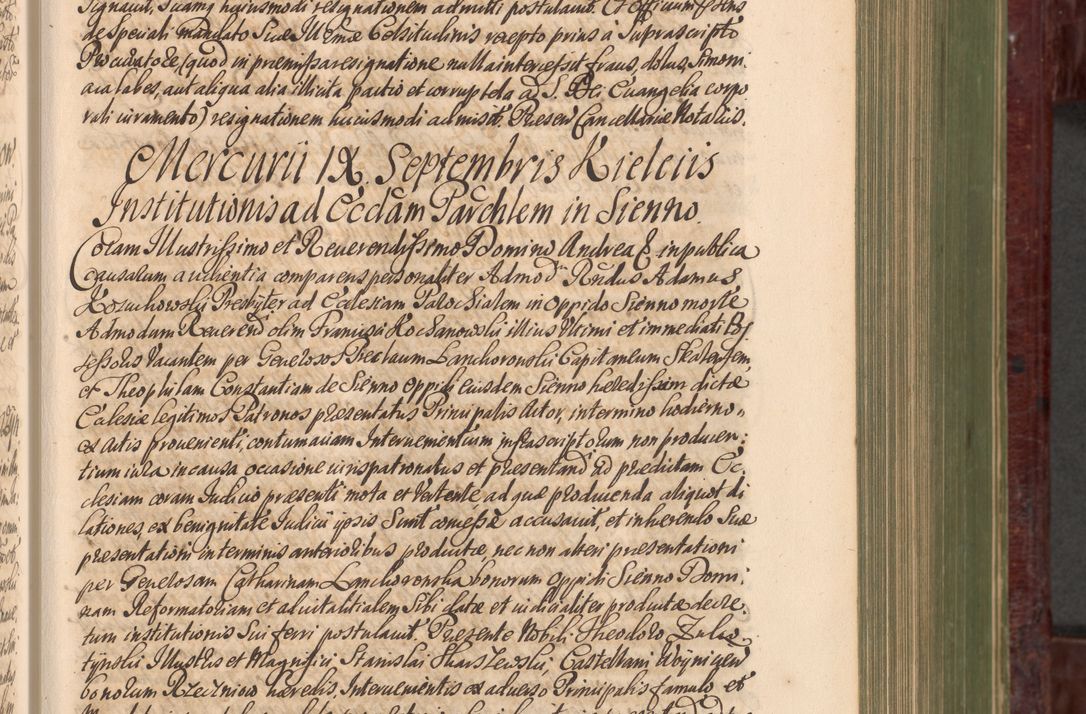 signavit, suamq huiusmodi resignationem admitti postulavit. Et officium
de speciali mandato Suae Illmae Celsitudinis recepto prius à suprascripto
Procuratore (quod in praemissa resignatione nulla intercessit fraus, dolus, Simoni,
aca labes, aut aliqua alia illicita pactio et corruptela ad S. Dei Evangelia corpo
rali iuramento) resignationem huiusmodi admisit. Presen Cancellariae Notariis.
Mercurii IX. Septembris Kielciis
Institutionis ad Eccl̃am Parchlem in Sienno.
Coram Illustrissimo et Reverendissimo Domino Andrea & in publica
causarum audientia comparens personaliter Admod Rndus Adamus
Kozuchowski Presbyter ad Ecclesiam Parochialem in Oppido Sienno morte
Admodum Reverend olim Francisci Kochanowski illius ultimi et immediati Pos
sessoris vacantem per Generosos Lanckoronski Capitaneum
et Theophilam Constantiam de Sienno oppidi eiusdem Sienno haeredes dictae
Ecclesiae legitimos Patronos praesentatus Principalis Actor, in termino hodierno
ex actis provenienti, contumaciam Intervenientium infrascriptorum non producen:
tium iura in causa occasione iurispatronatus et praesentand ad praedictam Ec,
clesiam coram Iudicio praesenti mota et vertente, ad quae producenda aliquot di
lationes, ex benignitate Iudicii ipsis sunt concessae accusavit, et inhaerendo suae
praesentationi in terminis anterioribus productae, nec non alteri praesentationi
per Generosam Catharinam Lanckoronska bonorum oppidi Sienno Domi:
nam Reformatoriam et advitalitialem sibi datae et iudicialiter productae decre,
tum institutionis sui ferri postulavit. Presente Nobili Theodoro
Illustris et Magnifici Stanislai Castellani
bonorum haeredis, Intervenientis ex adverso Principalis famulo et